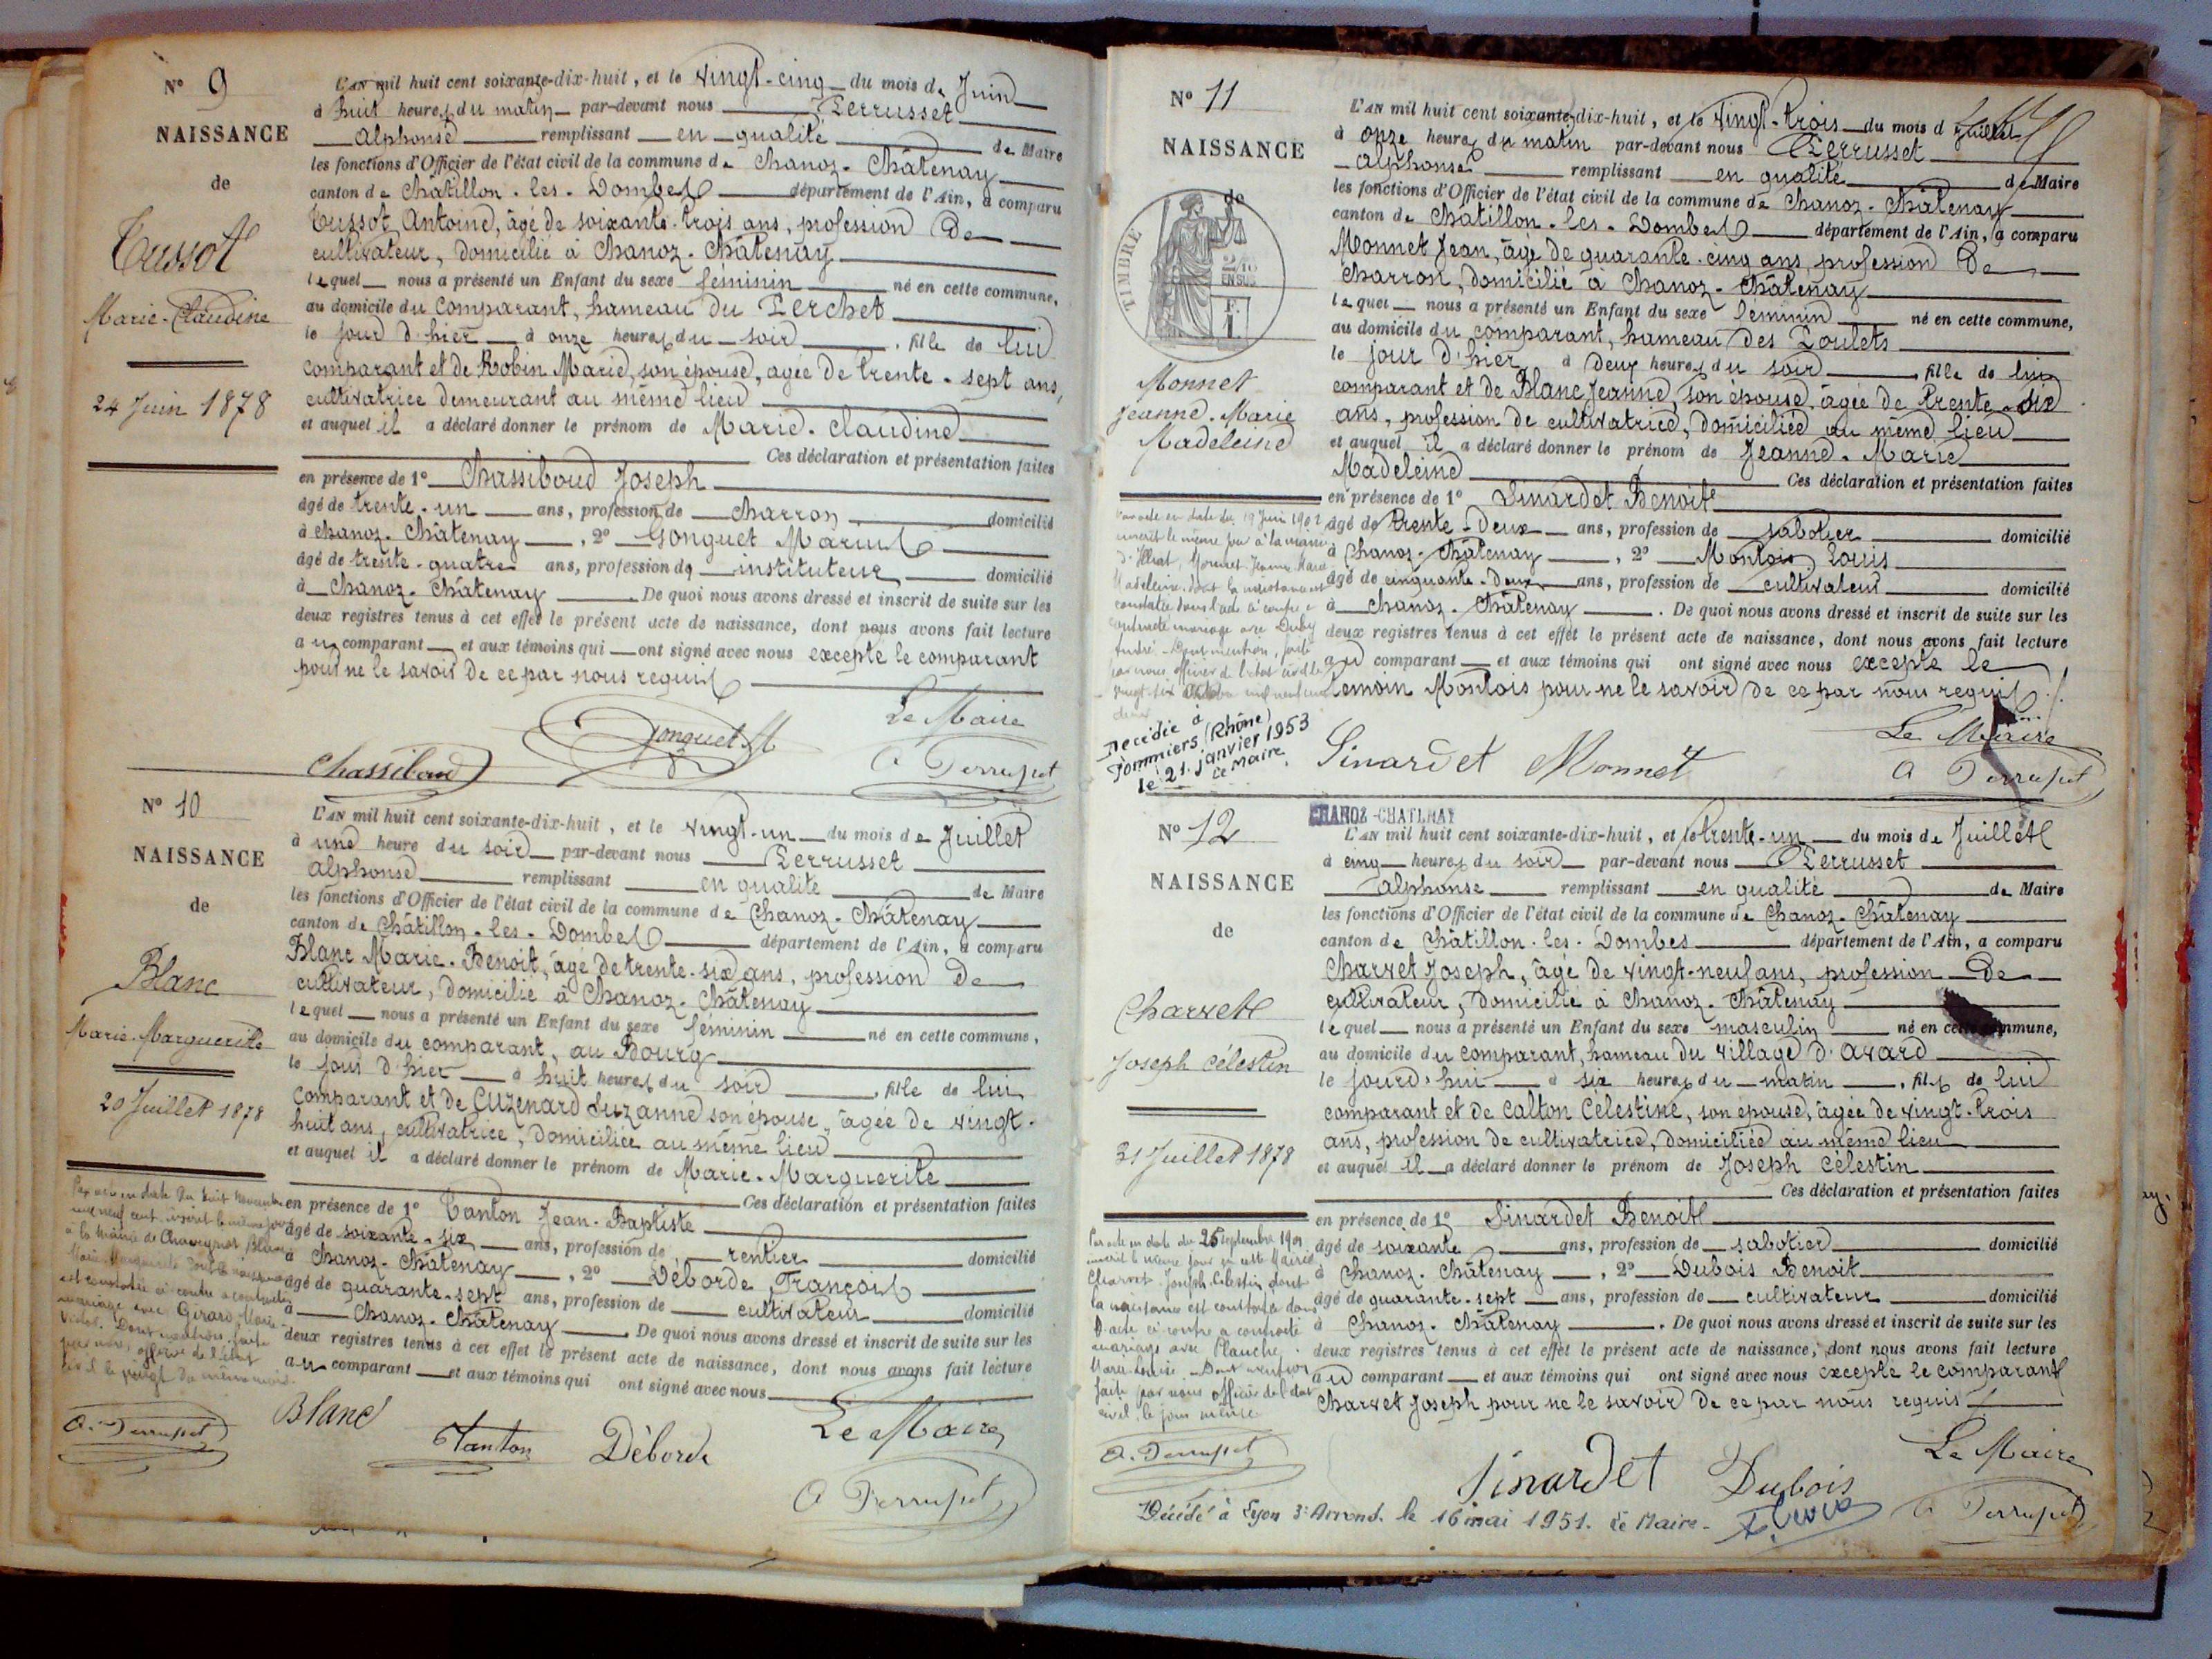 N° 9
NAISSANCE
de
Tussot
Marie-Claudine
24 Juin 1878
L'AN mil huit cent soixante-dix-huit, et le vingt-cinq du mois de Juin
à huit heures du matin par-devant nous Perrusset
Alphonse remplissant en qualité de Maire
les fonctions d'Officier de l'état civil de la commune de Chanoz-Châtenay
canton de Châtillon-les-Dombes département de l'Ain, a comparu
Tussot Antoine, âgé de soixante-trois ans, profession de
cultivateur, domicilié à Chanoz-Châtenay
lequel nous a présenté un Enfant du sexe féminin né en cette commune,
au domicile du comparant, hameau du Perchet
le jour d'hier à onze heures du soir, fille de lui
comparant et de Robin Marie, son épouse, agée de trente-sept ans,
cultivatrice demeurant au même lieu
et auquel il a déclaré donner le prénom de Marie-Claudine
Ces déclaration et présentation faites
en présence de 1° Chassiboud Joseph
âgé de trente-un ans, profession de charron domicilié
à Chanoz-Châtenay, 2° Gonguet Marius
âgé de trente-quatre ans, profession de instituteur domicilié
à Chanoz-Châtenay. De quoi nous avons dressé et inscrit de suite sur les
deux registres tenus à cet effet le présent acte de naissance, dont nous avons fait lecture
au comparant et aux témoins qui ont signé avec nous excepté le comparant
pour ne le savoir de ce par nous requis
Le Maire
Chassiboud Gonguet M A Perrusset
N° 10
NAISSANCE
de
Blanc
Marie-Marguerite
20 Juillet 1878
L'AN mil huit cent soixante-dix-huit, et le vingt-un du mois de Juillet
à une heure du soir par-devant nous Perrusset
Alphonse remplissant en qualité de Maire
les fonctions d'Officier de l'état civil de la commune de Chanoz-Châtenay
canton de Châtillon-les-Dombes département de l'Ain, a comparu
Blanc Marie-Benoit, âgé de trente-six ans, profession de
cultivateur, domicilié à Chanoz-Châtenay
lequel nous a présenté un Enfant du sexe féminin né en cette commune,
au domicile du comparant, au Bourg
le jour d'hier à huit heures du soir, fille de lui
comparant et de Cuzenard Suzanne son épouse, âgée de vingt-
huit ans, cultivatrice, domiciliée au même lieu
et auquel il a déclaré donner le prénom de Marie-Marguerite
Ces déclaration et présentation faites
en présence de 1° Tanton Jean-Baptiste
âgé de soixante-six ans, profession de rentier domicilié
à Chanoz-Châtenay, 2° Déborde François
âgé de quarante-sept ans, profession de cultivateur domicilié
à Chanoz-Châtenay. De quoi nous avons dressé et inscrit de suite sur les
deux registres tenus à cet effet le présent acte de naissance, dont nous avons fait lecture
au comparant et aux témoins qui ont signé avec nous
Par acte en date du huit novembre
mil neuf cent, inscrit le même jour
à la mairie de Chaveyriat Blanc
Marie Marguerite dont la naissance
est constatée ci contre a contracté
mariage avec Girard, Marie
Victor. Dont mention faite
par nous, officier de l'état
civil le vingt du même mois.
A. Perrusset
Blanc Tanton Déborde
Le Maire
A Perrusset
N° 11
NAISSANCE
de
TIMBRE
2/10
EN SUS
F.
1.
Monnet
Jeanne-Marie
Madeleine
L'AN mil huit cent soixante-dix-huit, et le vingt-trois du mois de Juillet
à onze heures du matin par-devant nous Perrusset
Alphonse remplissant en qualité de Maire
les fonctions d'Officier de l'état civil de la commune de Chanoz-Châtenay
canton de Châtillon-les-Dombes département de l'Ain, a comparu
Monnet Jean, âgé de quarante-cinq ans, profession de
charron, domicilié à Chanoz-Châtenay
lequel nous a présenté un Enfant du sexe féminin né en cette commune,
au domicile du comparant, hameau des Poulets
le jour d'hier à deux heures du soir, fille de lui
comparant et de Blanc Jeanne, son épouse, âgée de trente-six
ans, profession de cultivatrice, domiciliée au même lieu
et auquel il a déclaré donner le prénom de Jeanne-Marie
Madeleine Ces déclaration et présentation faites
en présence de 1° Sinardet Benoit
âgé de trente-deux ans, profession de sabotier domicilié
à Chanoz-Châtenay, 2° Montois Louis
âgé de cinquante-deux ans, profession de cultivateur domicilié
à Chanoz-Châtenay. De quoi nous avons dressé et inscrit de suite sur les
deux registres tenus à cet effet le présent acte de naissance, dont nous avons fait lecture
au comparant et aux témoins qui ont signé avec nous excepté le
témoin Montois pour ne le savoir de ce par nous requis
Par acte en date du 19 Juin 1902
inscrit le même jour à la mairie
d'Illiat, Monnet Jeanne Marie
Madeleine dont la naissance est
constatée dans l'acte ci contre a
contracté mariage avec
André. Dont mention faite
par nous officier de l'état civil le
vingt-six mil neuf cent
deux
Décédée à
Pommiers (Rhône)
le 21 janvier 1953
Le Maire.
Sinardet Monnet
Le Maire
A Perrusset
CHANOZ-CHATENAY
N° 12
NAISSANCE
de
Charvet
Joseph Célestin
31 Juillet 1878
L'AN mil huit cent soixante-dix-huit, et le trente-un du mois de Juillet
à cinq heures du soir par-devant nous Perrusset
Alphonse remplissant en qualité de Maire
les fonctions d'Officier de l'état civil de la commune de Chanoz-Châtenay
canton de Châtillon-les-Dombes département de l'Ain, a comparu
Charvet Joseph, âgé de vingt-neuf ans, profession de
cultivateur, domicilié à Chanoz-Châtenay
lequel nous a présenté un Enfant du sexe masculin né en cette commune,
au domicile du comparant, hameau du village d'Avard
le jourd'hui à six heures du matin, fils de lui
comparant et de Calton Célestine, son épouse, âgée de vingt-trois
ans, profession de cultivatrice, domiciliée au même lieu
et auquel il a déclaré donner le prénom de Joseph Célestin
Ces déclaration et présentation faites
en présence de 1° Sinardet Benoit
âgé de soixante ans, profession de sabotier domicilié
à Chanoz-Châtenay, 2° Dubois Benoit
âgé de quarante-sept ans, profession de cultivateur domicilié
à Chanoz-Châtenay. De quoi nous avons dressé et inscrit de suite sur les
deux registres tenus à cet effet le présent acte de naissance, dont nous avons fait lecture
au comparant et aux témoins qui ont signé avec nous excepté le comparant
Charvet Joseph pour ne le savoir de ce par nous requis
Par acte en date du 26 septembre 1901
inscrit le même jour en cette Mairie
Charvet Joseph Célestin, dont
la naissance est constatée dans
l'acte ci contre a contracté
mariage avec Planche
Marie-Louise. Dont mention
faite par nous officier de l'état
civil, le jour même
A. Perrusset
Sinardet Dubois
Le Maire
A Perrusset
Décédé à Lyon 3e Arrond. le 16 mai 1951. Le Maire.